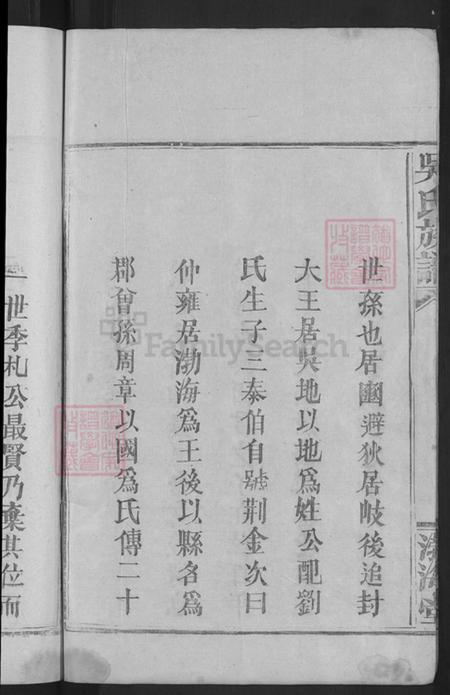 吳氏族譜
渤海堂
世孫也居豳避狄居岐後追封
大王居吳地以地為姓公配劉
氏生子三泰伯自號荆金次曰
仲雍居渤海為王後以縣名為
郡曾孫周章以國為氏傳二十
一世季札公最賢乃棄其位而
FamilySearch